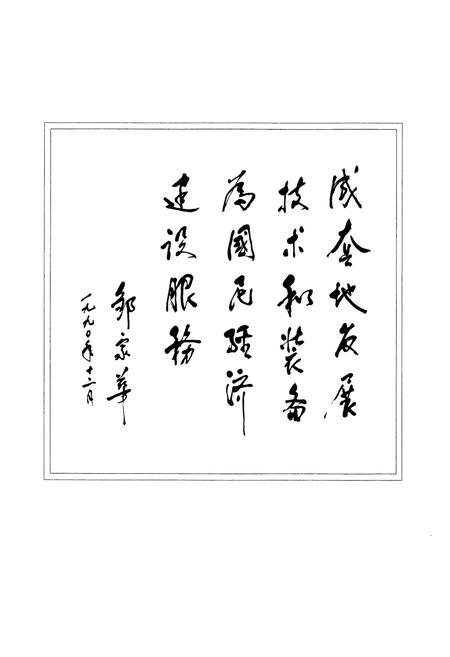 成套地发展
技术和装备
為國民经济
建设服務
邹家華
一九九〇年十二月